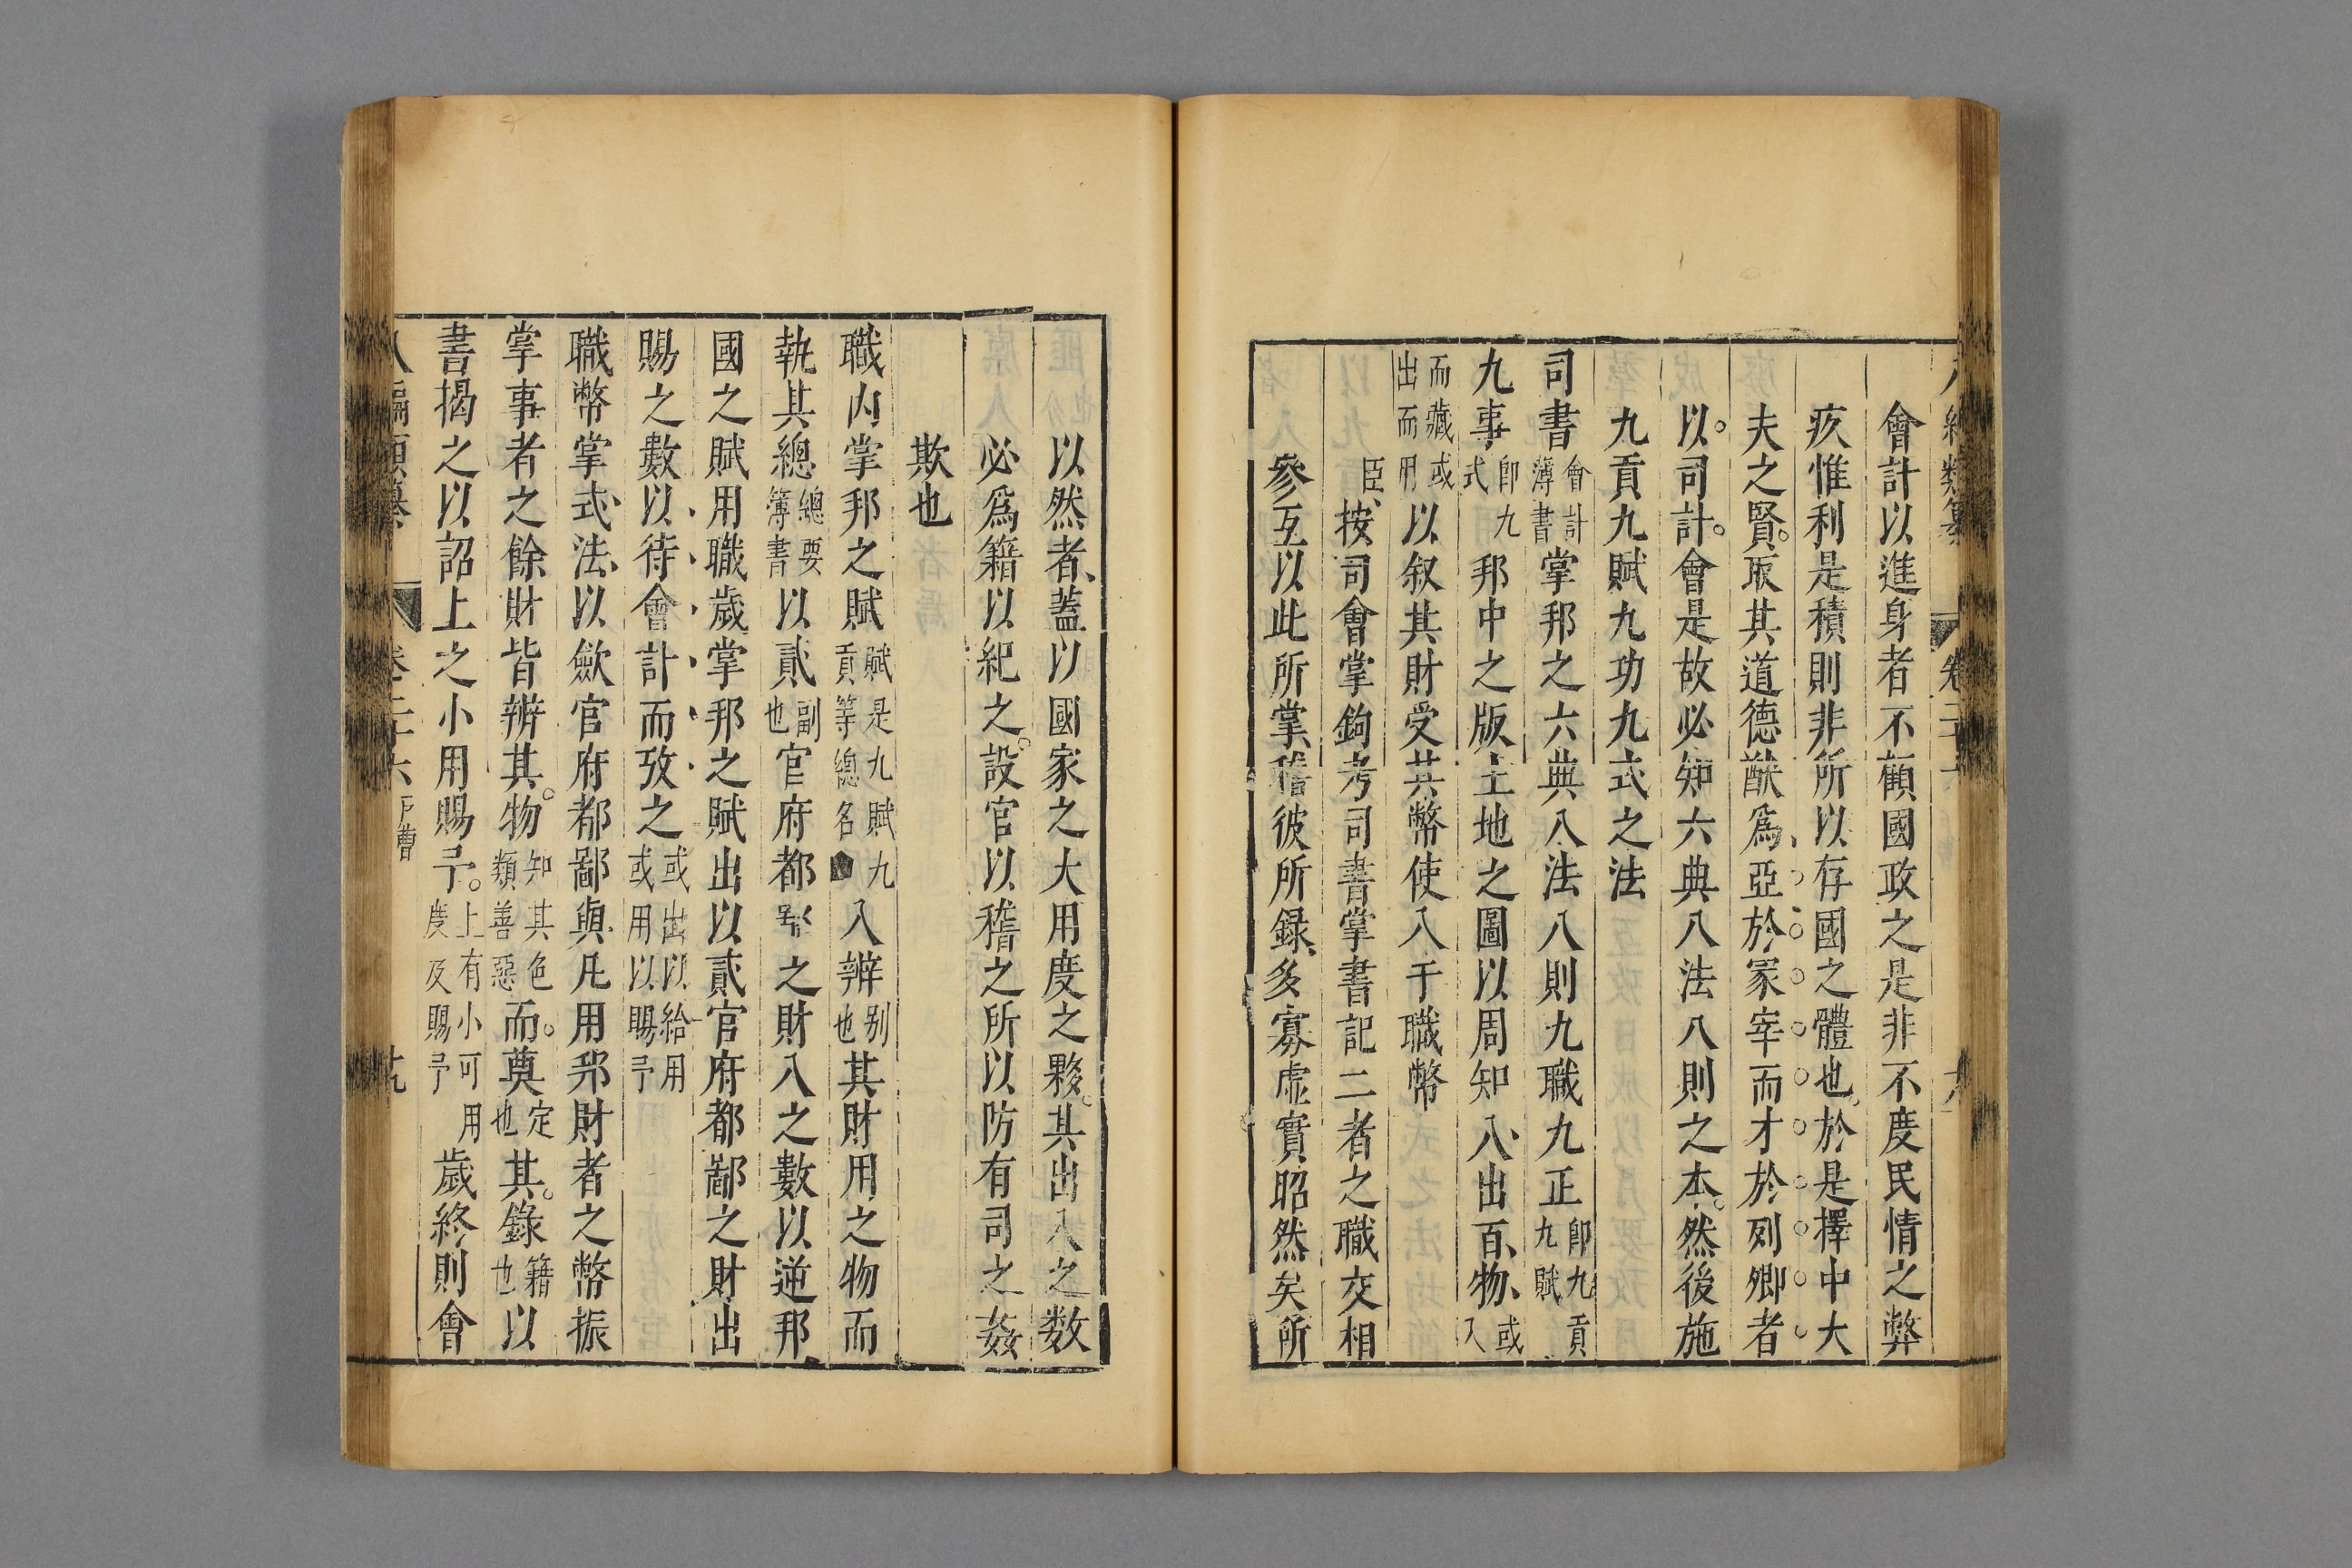 會計以進身者不顧國政之是非不度民情之弊
疚惟利是積則非所以存國之體也於是擇中大
夫之賢取其道德猷爲亞於冢宰而才於列卿者
以司計會是故必知六典八法八則之本然後施
九貢九賦九功九式之法
司書會計薄書掌邦之六典八法八則九職九正卽九貢九賦
九事卽九式邦中之版土地之圖以周知入出百物或入
而藏或出而用以叙其財受其幣使入于職幣
臣按司會掌鉤考司書掌書記二者之職交相
參互以此所掌稽彼所録多寡虛實昭然矣所
以然者蓋以國家之大用度之夥其出入之数
必爲籍以紀之設官以稽之所以防有司之姦
欺也
職内掌邦之賦賦是九賦九貢等總名入辨别也其財用之物而
執其總總要簿書以貳副也官府都之財入之數以逆邦
國之賦用職歲掌邦之賦出以貳官府都鄙之財出
賜之數以待會計而攷之或出以給用或用以賜予
職幣掌式法以斂官府都鄙與凡用邦財者之幣振
掌事者之餘財皆辨其物知其色類善惡而奠定也其錄籍也以
書揭之以詔上之小用賜予上有小可用度及賜予歲終則會
卷二十六 戸曹